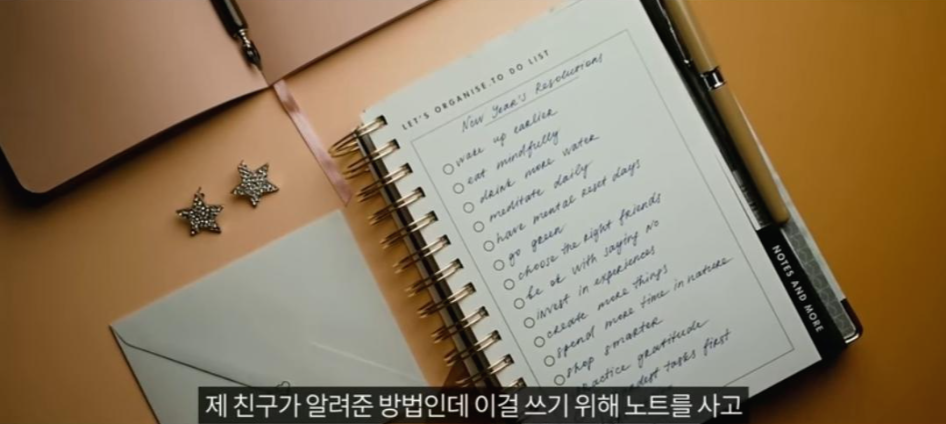 LET'S ORGANISE TO DO LIST
New Year's Resolutions
wake up earlier
eat mindfully
drink more water
meditate daily
have mental reset days
go green
choose the right friends
be ok with saying no
invest in experiences
create more things
spend more time in nature
shop smarter
practice gratitude
tasks first
NOTES AND MORE
제 친구가 알려준 방법인데 이걸 쓰기 위해 노트를 사고